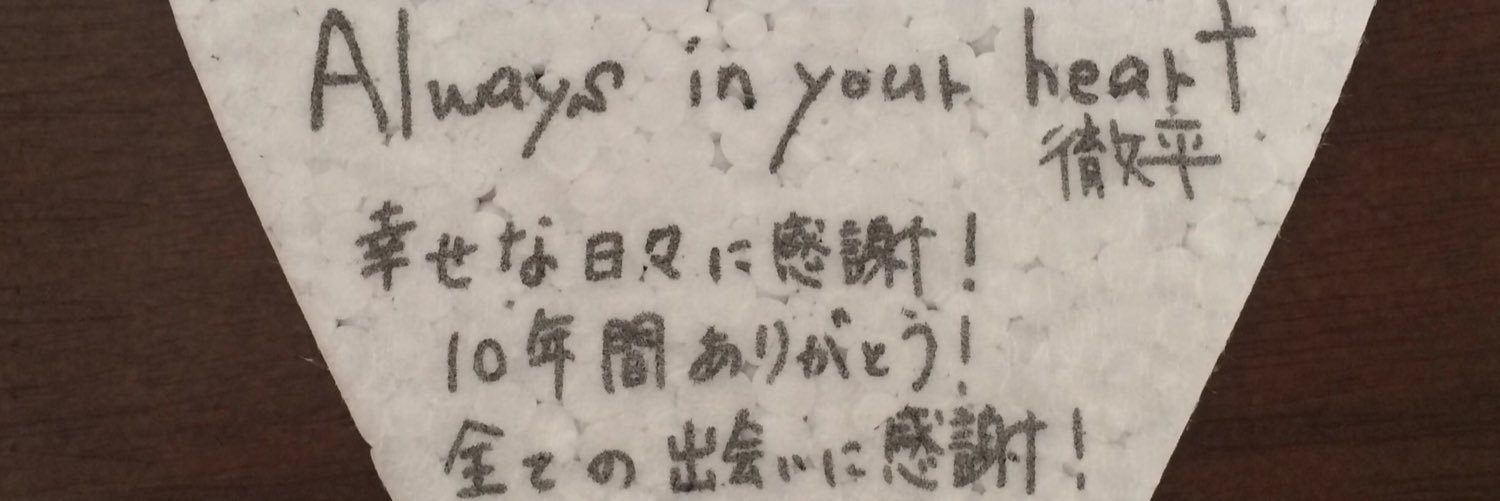 Always in your heart
徹平
幸せな日々に感謝!
10年間ありがとう!
全ての出会いに感謝!